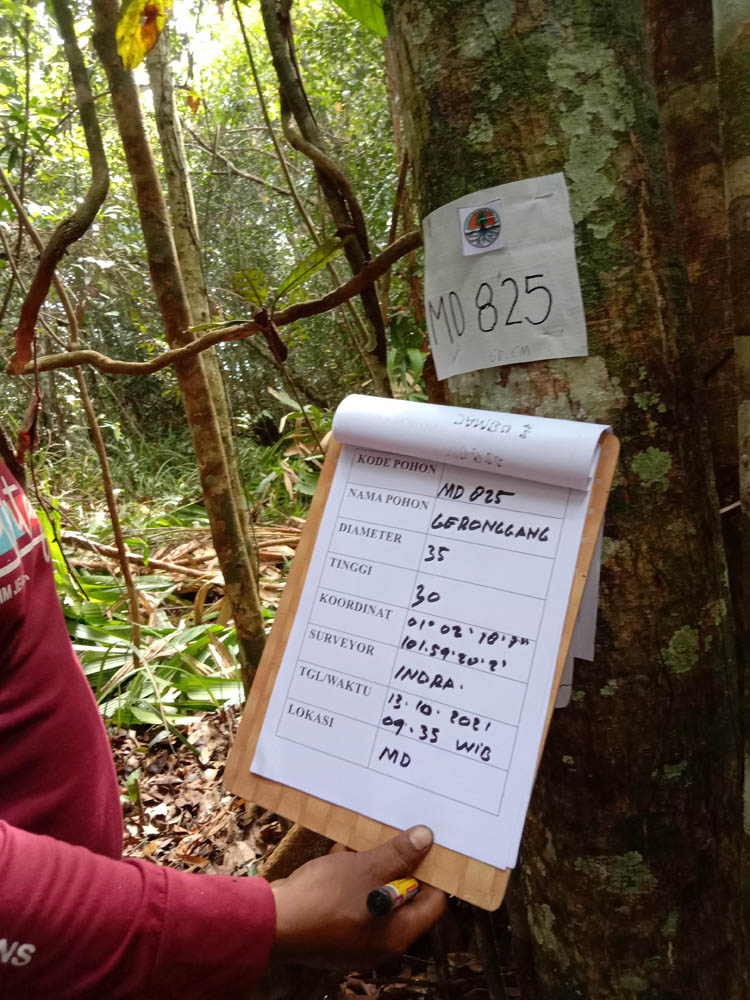 MD 825
68 CM
KODE POHON MD 825
NAMA POHON GERONGGANG
DIAMETER 35
TINGGI 30
KOORDINAT 01° 02' 18.7"
101.59.20.2'
SURVEYOR INDRA.
TGL/WAKTU 13.10.2021
09.35 WIB
LOKASI MD
NS